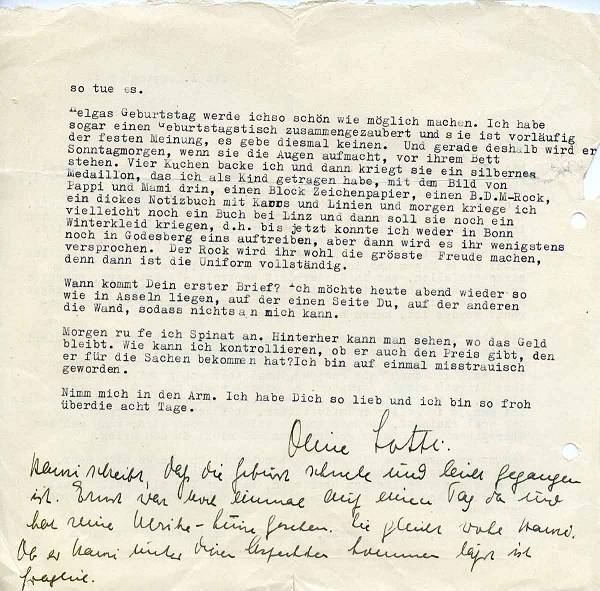 so tue es.
"elgas Geburtstag werde ichso schön wie möglich machen. Ich habe
sogar einen Geburtstagstisch zusammengezaubert und sie ist vorläufig
der festen Meinung, es gebe diesmal keinen. Und gerade deshalb wird er
Sonntagmorgen, wenn sie die Augen aufmacht, vor ihrem Bett
stehen. Vier Kuchen backe ich und dann kriegt sie ein silbernes
Medaillon, das ich als Kind getragen habe, mit dem Bild von
Pappi und Mami drin, einen Block Zeichenpapier, einen B.D.M-Rock,
ein dickes Notizbuch mit Karos und Linien und morgen kriege ich
vielleicht noch ein Buch bei Linz und dann soll sie noch ein
Winterkleid kriegen, d.h. bis jetzt konnte ich weder in Bonn
noch in Godesberg eins auftreiben, aber dann wird es ihr wenigstens
versprochen. Der Rock wird ihr wohl die grösste Freude machen,
denn dann ist die Uniform vollständig.
Wann kommt Dein erster Brief? Ich möchte heute abend wieder so
wie in Asseln liegen, auf der einen Seite Du, auf der anderen
die Wand, sodass nichts an mich kann.
Morgen ru fe ich Spinat an. Hinterher kann man sehen, wo das Geld
bleibt. Wie kann ich kontrollieren, ob er auch den Preis gibt, den
er für die Sachen bekommen hat?Ich bin auf einmal misstrauisch
geworden.
Nimm mich in den Arm. Ich habe Dich so lieb und ich bin so froh
überdie acht Tage.
Deine Lotti.
Hanni schreibt, daß die Geburt schnell und leicht gegangen
ist. Ernst war noch einmal auf einen Tag da und
hat seine Ulrike- gesehen. Sie gleicht wohl Hanni.
Ob er Hanni unter diesen kommen läßt ist
fraglich.